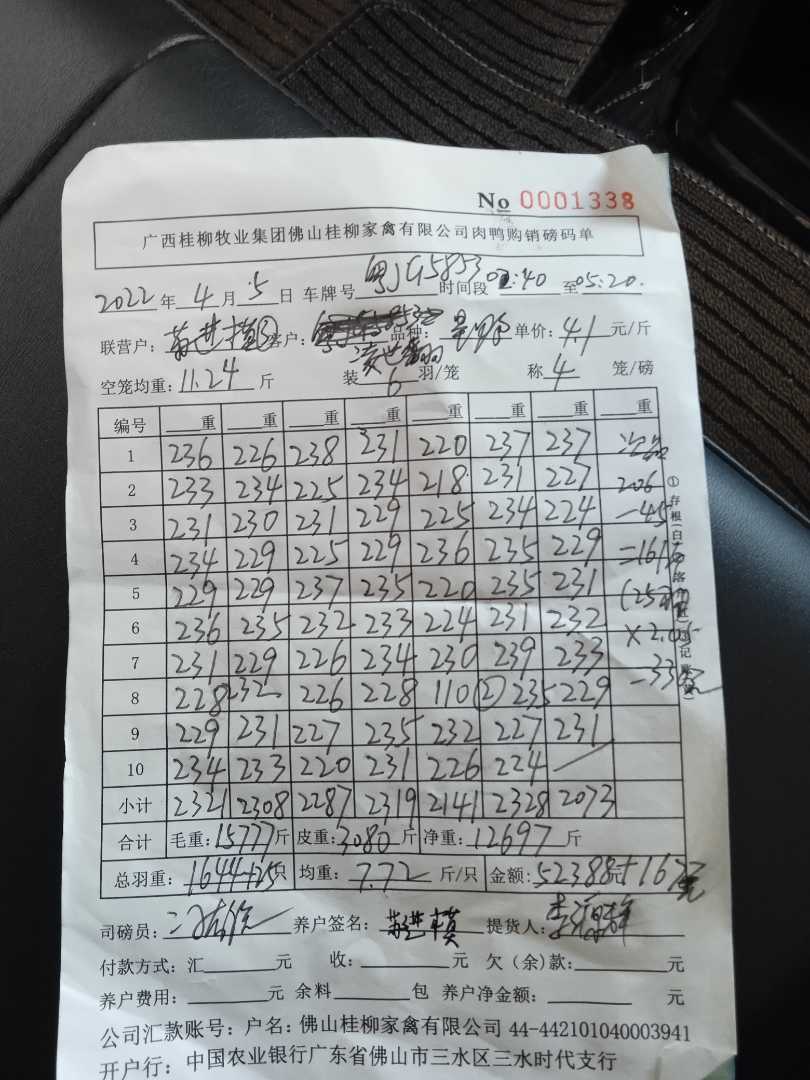 No 0001338
广西桂柳牧业集团佛山桂柳家禽有限公司肉鸭购销磅码单
2022年4月5日 车牌号 粤JG5853 时间段 02:40 至 05:20.
联营户: 客户: 品种: 单价: 4.1 元/斤
空笼均重: 11.24 斤 装 6 羽/笼 称 4 笼/磅
编号 重 重 重 重 重 重 重 重
1 236 226 238 231 220 237 237 次品
2 233 234 225 234 218 231 227 206
3 231 230 231 229 225 234 224 -45
4 234 229 225 229 236 235 229 =161
5 229 229 237 235 220 235 231 (25
6 236 235 232 233 224 231 232
7 231 229 226 234 230 239 233
8 228 232 226 228 110② 235 229
9 229 231 227 235 232 227 231
10 234 233 220 231 226 224
小计 2321 2308 2287 2319 2141 2328 2073
合计 毛重: 15777 斤 皮重: 3080 斤 净重: 12697 斤
总羽重: 1644+25 只 均重: 7.72 斤/只 金额: 52388元+167元
司磅员: 养户签名: 提货人:
付款方式: 汇 元 收: 元 欠(余)款: 元
养户费用: 元 余料 包 养户净金额: 元
公司汇款账号: 户名: 佛山桂柳家禽有限公司 44-442101040003941
开户行: 中国农业银行广东省佛山市三水区三水时代支行
①存根(白)